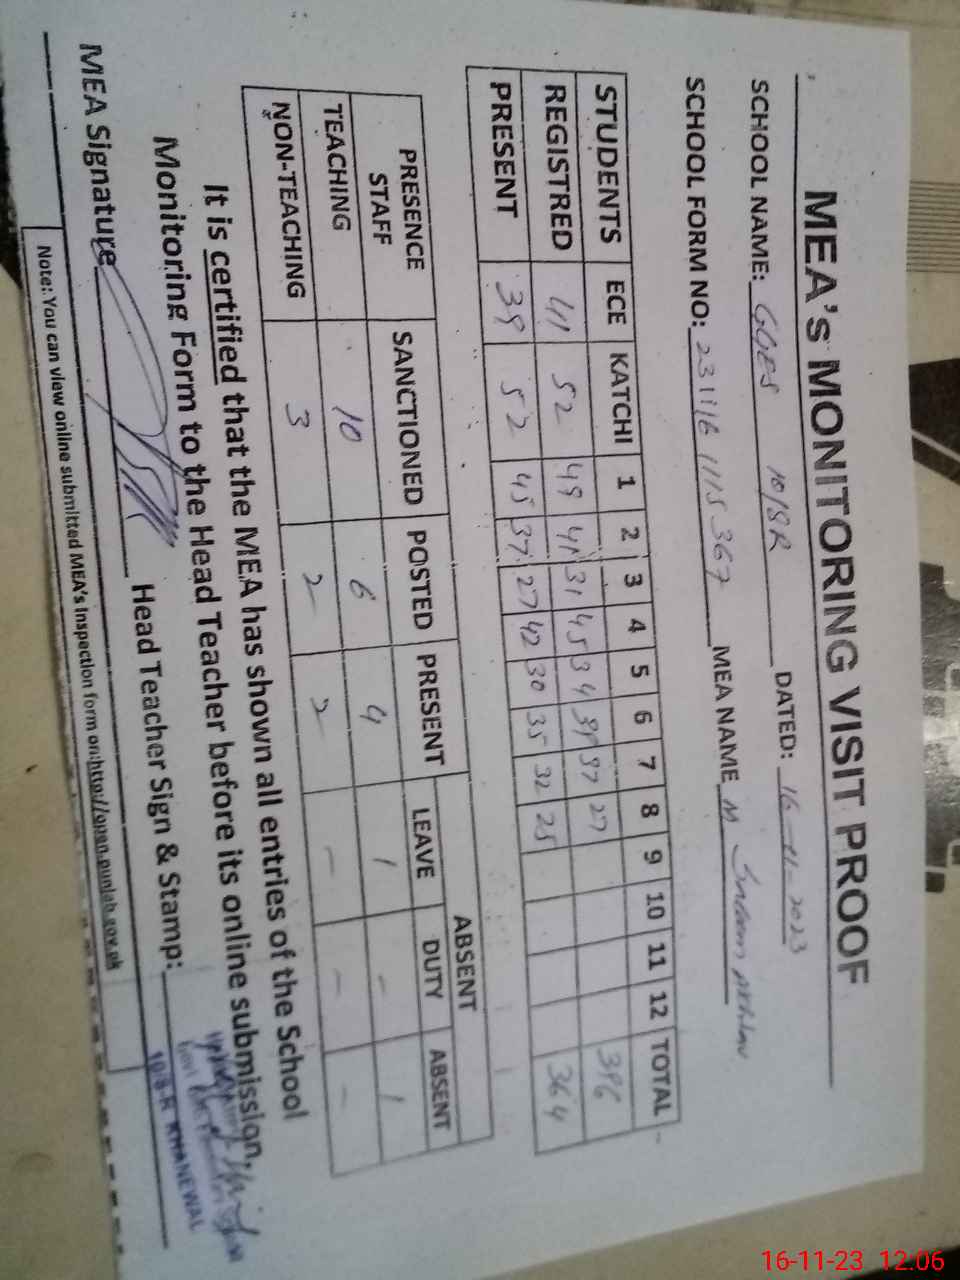 MEA's MONITORING VISIT PROOF
SCHOOL NAME: GGES 10/8R DATED: 16-11-2023
SCHOOL FORM NO: 231116 1115 367 MEA NAME M Akhtar
STUDENTS ECE KATCHI 1 2 3 4 5 6 7 8 9 10 11 12 TOTAL
REGISTRED 41 52 49 41 31 45 34 39 37 27 396
PRESENT 39 52 45 37 27 42 30 35 32 25 364
PRESENCE STAFF SANCTIONED POSTED PRESENT ABSENT
LEAVE DUTY ABSENT
TEACHING 10 6 4 1 - 1
NON-TEACHING 3 2 2 - - -
It is certified that the MEA has shown all entries of the School
Monitoring Form to the Head Teacher before its online submission.
MEA Signature Head Teacher Sign & Stamp:
10/8-R KHANEWAL
Note: You can view online submitted MEA's Inspection form on:http://open.punjab.gov.pk
16-11-23 12.06